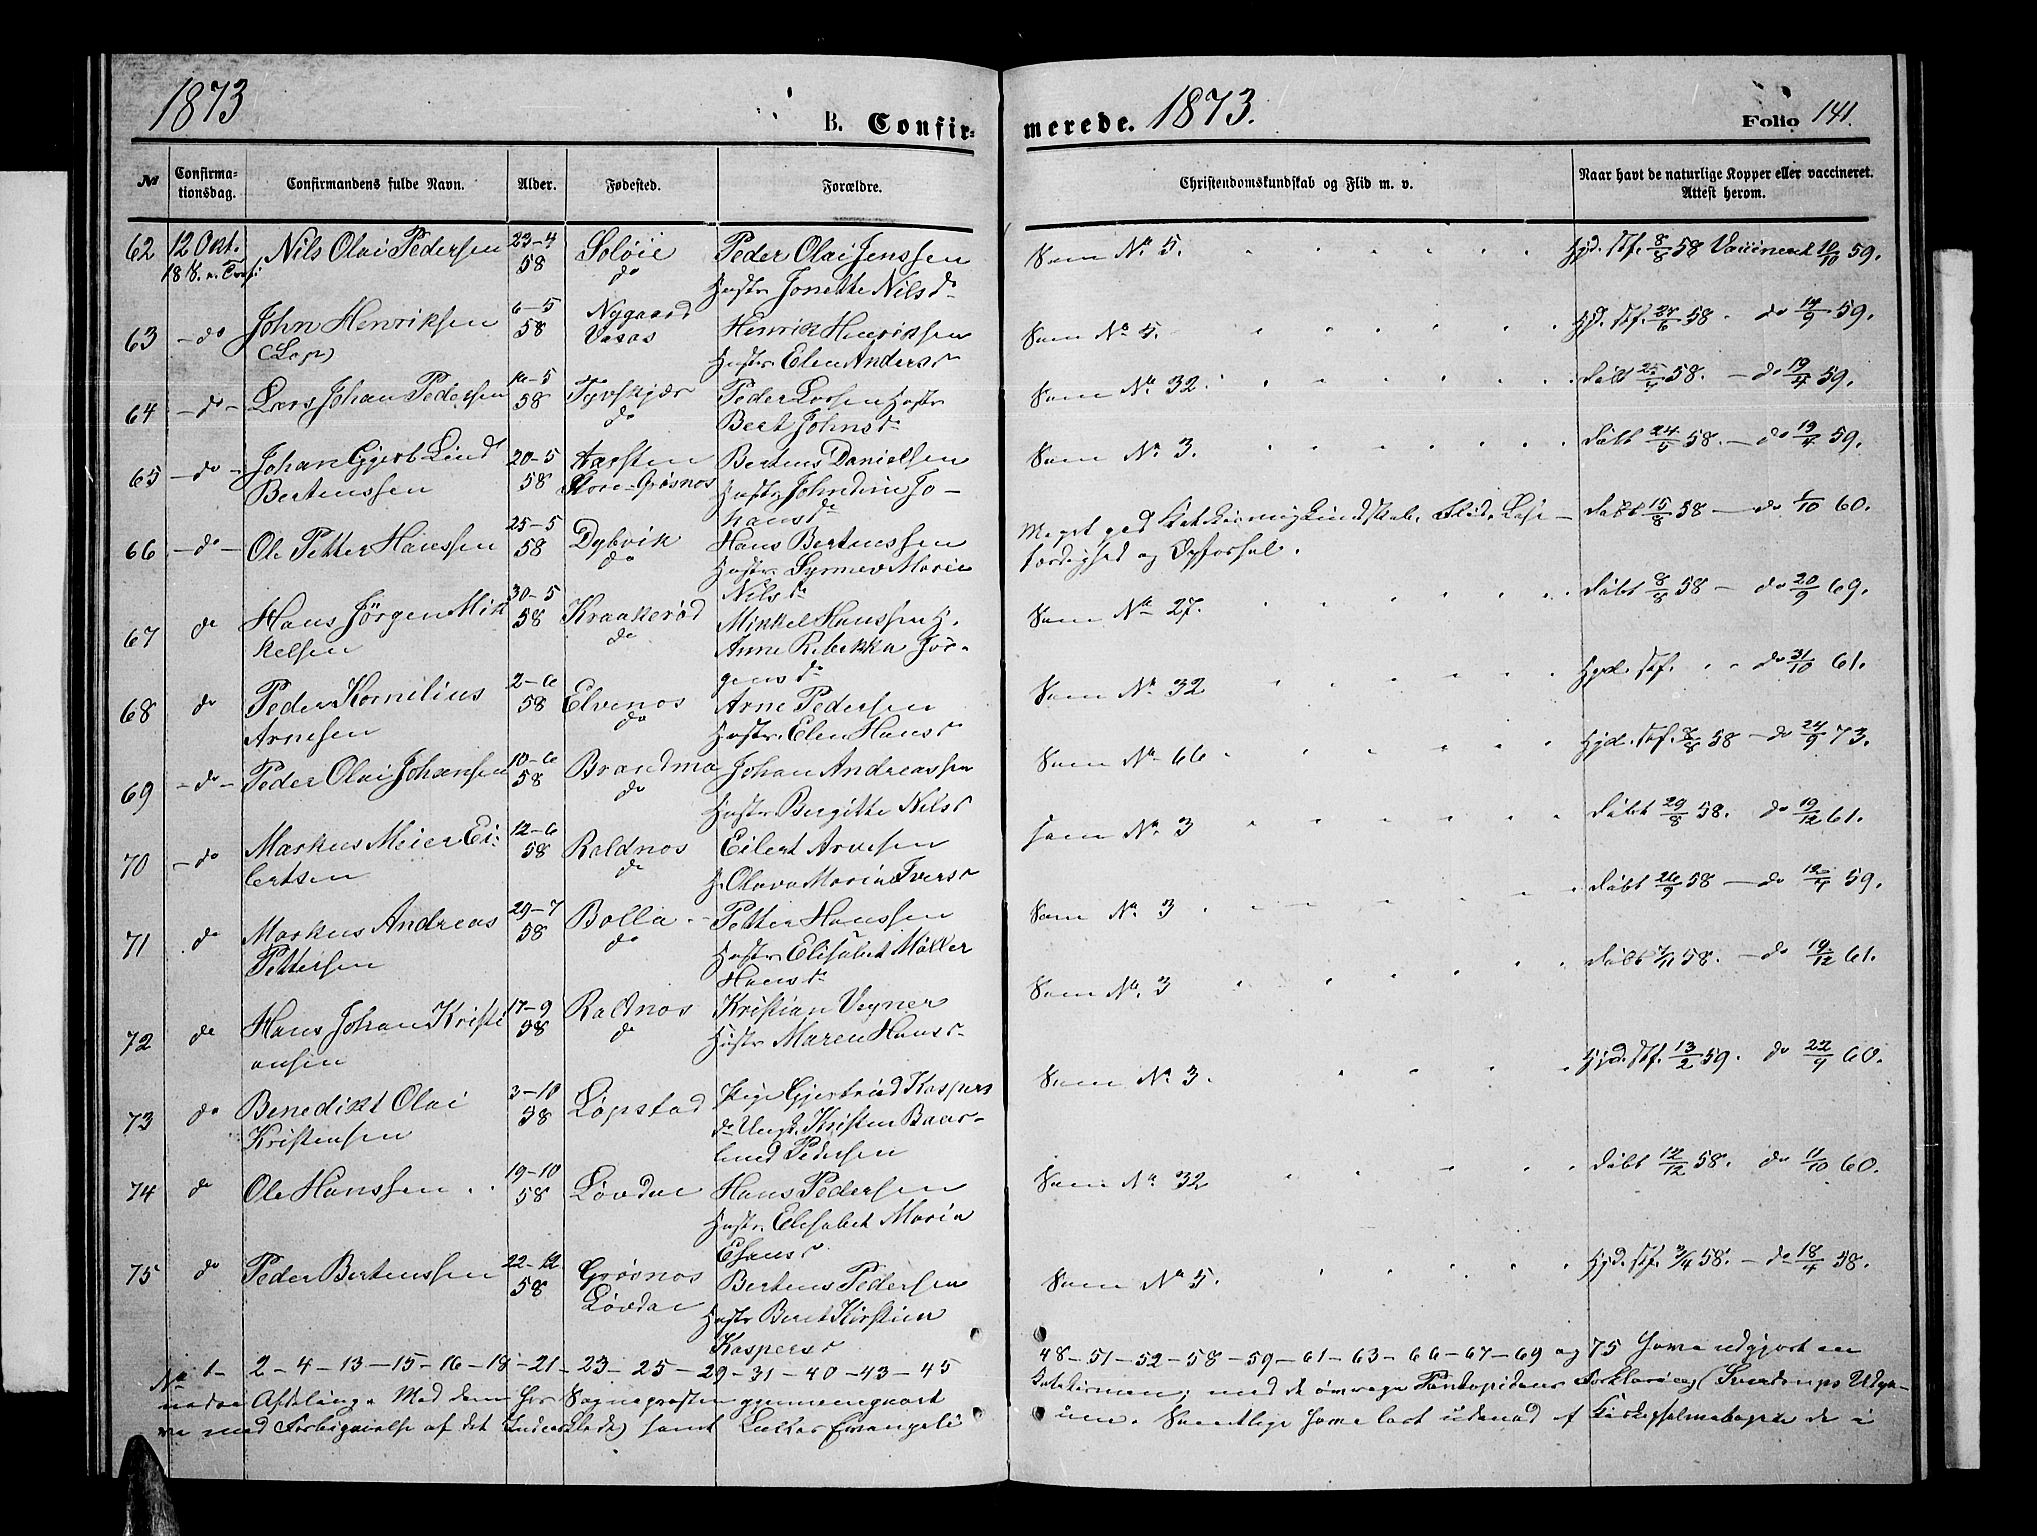 1873
B. Confir-
merede. 1873.
Folio 141.
No
Confirma-
tionsdag.
Confirmandens fulde Navn.
Alder.
Fødested.
Forældre.
Christendomskundskab og Flid m. v.
Naar havt de naturlige Kopper eller vaccineret.
Attest herom.
62 12 Okt. Nils Olai Pedersen 23-4 58 Soløie do
Peder Olai Jenssen
Hustr Jonette Nilsdr
Som No 5.
Hjd. Stf. 8/8 58 Vaccineret 10/10 59.
63 - do John Henriksen 6-5 58 Nygaard
(Lap)
Henrik Henriksen
Hustr Elen Andersdr
Som No 5.
Hjd. Stf. 24/6 58 - do 14/9 59.
64 - do - Lars Johan Pedersen 58 do
Peder Larsen Hustr
Bert Johnsdr
Som No 32.
Døbt 58. - do 19/4 59.
65 - do - Johan Lind
Bertenssen
20-5 58
Store-Grøsnes
Berteus Danielsen
Hustr Johndine Jo-
hansdr
Som No 3.
Døbt 24/5 58. - do 19/4 59.
66 - do - Ole Petter Hanssen 25-5 58 Dybvik do
Hans Bertenssen
Hustr. Marie
Nilsdr
Meget god Kundskab, Flid, Læse-
færdighed og Opførsel.
Døbt 15/8 58 - do 1/10 60.
67 do Hans Jørgen Mik
kelsen
30-5 58 Kraakerød do
Mikkel Hanssen H.
Anne Rebekka Jør-
gensdr
Som No 27.
Døbt 8/8 58 - do 20/9 69.
68 do Peder Kornilius
Arnesen
2-6 58 Elvenes do
Arne Pedersen
Hustr. Elen Hansdr
Som No 32
Hjd. Stf. do 31/10 61.
69 - do - Peder Olai Johansen 10-6 58 do
Johan Andreassen
Hustr Bergitte Nilsdr
Som No 66
Hjd. Stf. 8/8 58 - do 24/9 73.
70 - do Markus Meier Ei-
lertsen
12-6 58 do
Eilert Arnesen
H. Olava Maria Iversdr
som No 3
Døbt 29/8 58. do 19/12 61.
71 do Markus Andreas
Pettersen
29-7 58 Bolla do
Petter Hanssen
Hustr. Elisabet Møller
Hansdr
Som No 3
Døbt 26/9 58 - do 59.
72 do Hans Johan Kristi
ansen
17-9 58 do
Kristian Vegner
Hustr Maren Hansdr
Som No 3
Døbt 58. - do 19/12 61.
73 do Benedikt Olai
Kristensen
3-10 58 Løpstad
Pige Gjertrud Kaspers
dr Ungk. Kristen
Pedersen
Som No 3.
Hjd. Stf. 13/2 59. do 22/9 60.
74 do Ole Hanssen 19-10 58 Løvdal
Hans Pedersen
Hustr. Elisabet Maria
Som No 32
Døbt 12/12 58. do 11/10 60.
75 do Peder Bertenssen 22-12 58 Grøsnes
Løvdal
Berteus Pedersen
Hustr Beret Kirstien
Kaspersdr
Som No 5.
Hjd. Stf. 58. - do 18/4 58.
No 1- 2 - 4 - 13 - 15 - 16 - 18 - 21 - 23 - 25 - 29 - 31 - 40 - 43 - 45
48 - 51 - 52 - 58 - 59 - 61 - 63 - 66 - 67 - 69 og 75 have udgjort en
nedre Afdeling. Med dem har Sognepræsten gjennemgaaet
med de øvrige Pontopidans Forklaring (Sverdrups Udga-
ve med Forbigaaelse af det ) samt Lukas Evangeli
um. Samtlige have lært udenad af Kirkepsalmebogen de i